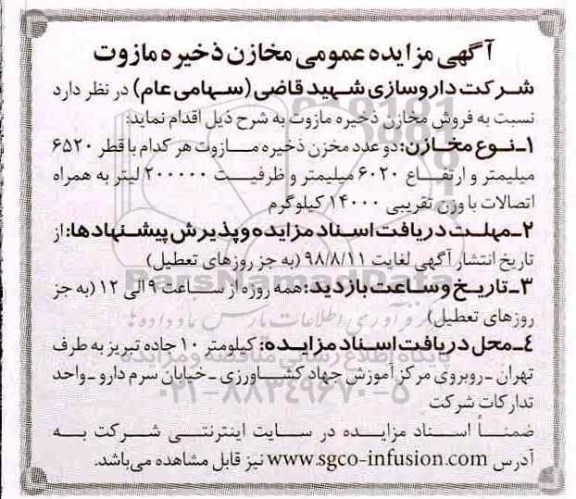 آگهی مزایده عمومی مخازن ذخیره مازوت
شرکت داروسازی شهید قاضی (سهامی عام) در نظر دارد
نسبت به فروش مخازن ذخیره مازوت به شرح ذیل اقدام نماید:
۱ـ نوع مخازن: دو عدد مخزن ذخیره مازوت هر کدام با قطر ۶۵۲۰
میلیمتر و ارتفاع ۶۰۲۰ میلیمتر و ظرفیت ۲۰۰۰۰۰ لیتر به همراه
اتصالات با وزن تقریبی ۱۴۰۰۰ کیلوگرم
۲ـ مهلت دریافت اسناد مزایده و پذیرش پیشنهادها: از
تاریخ انتشار آگهی لغایت ۹۸/۸/۱۱ (به جز روزهای تعطیل)
۳ـ تاریخ و ساعت بازدید: همه روزه از ساعت ۹ الی ۱۲ (به جز
روزهای تعطیل)
۴ـ محل دریافت اسناد مزایده: کیلومتر ۱۰ جاده تبریز به طرف
تهران ـ روبروی مرکز آموزش جهاد کشاورزی ـ خیابان سرم دارو ـ واحد
تدارکات شرکت
ضمناً اسناد مزایده در سایت اینترنتی شرکت به
آدرس www.sgco-infusion.com نیز قابل مشاهده می‌باشد.
ParsNamadData
پایگاه اطلاع رسانی مناقصه و مزایده
۰۲۱-۸۸۳۴۹۶۷۰-۵